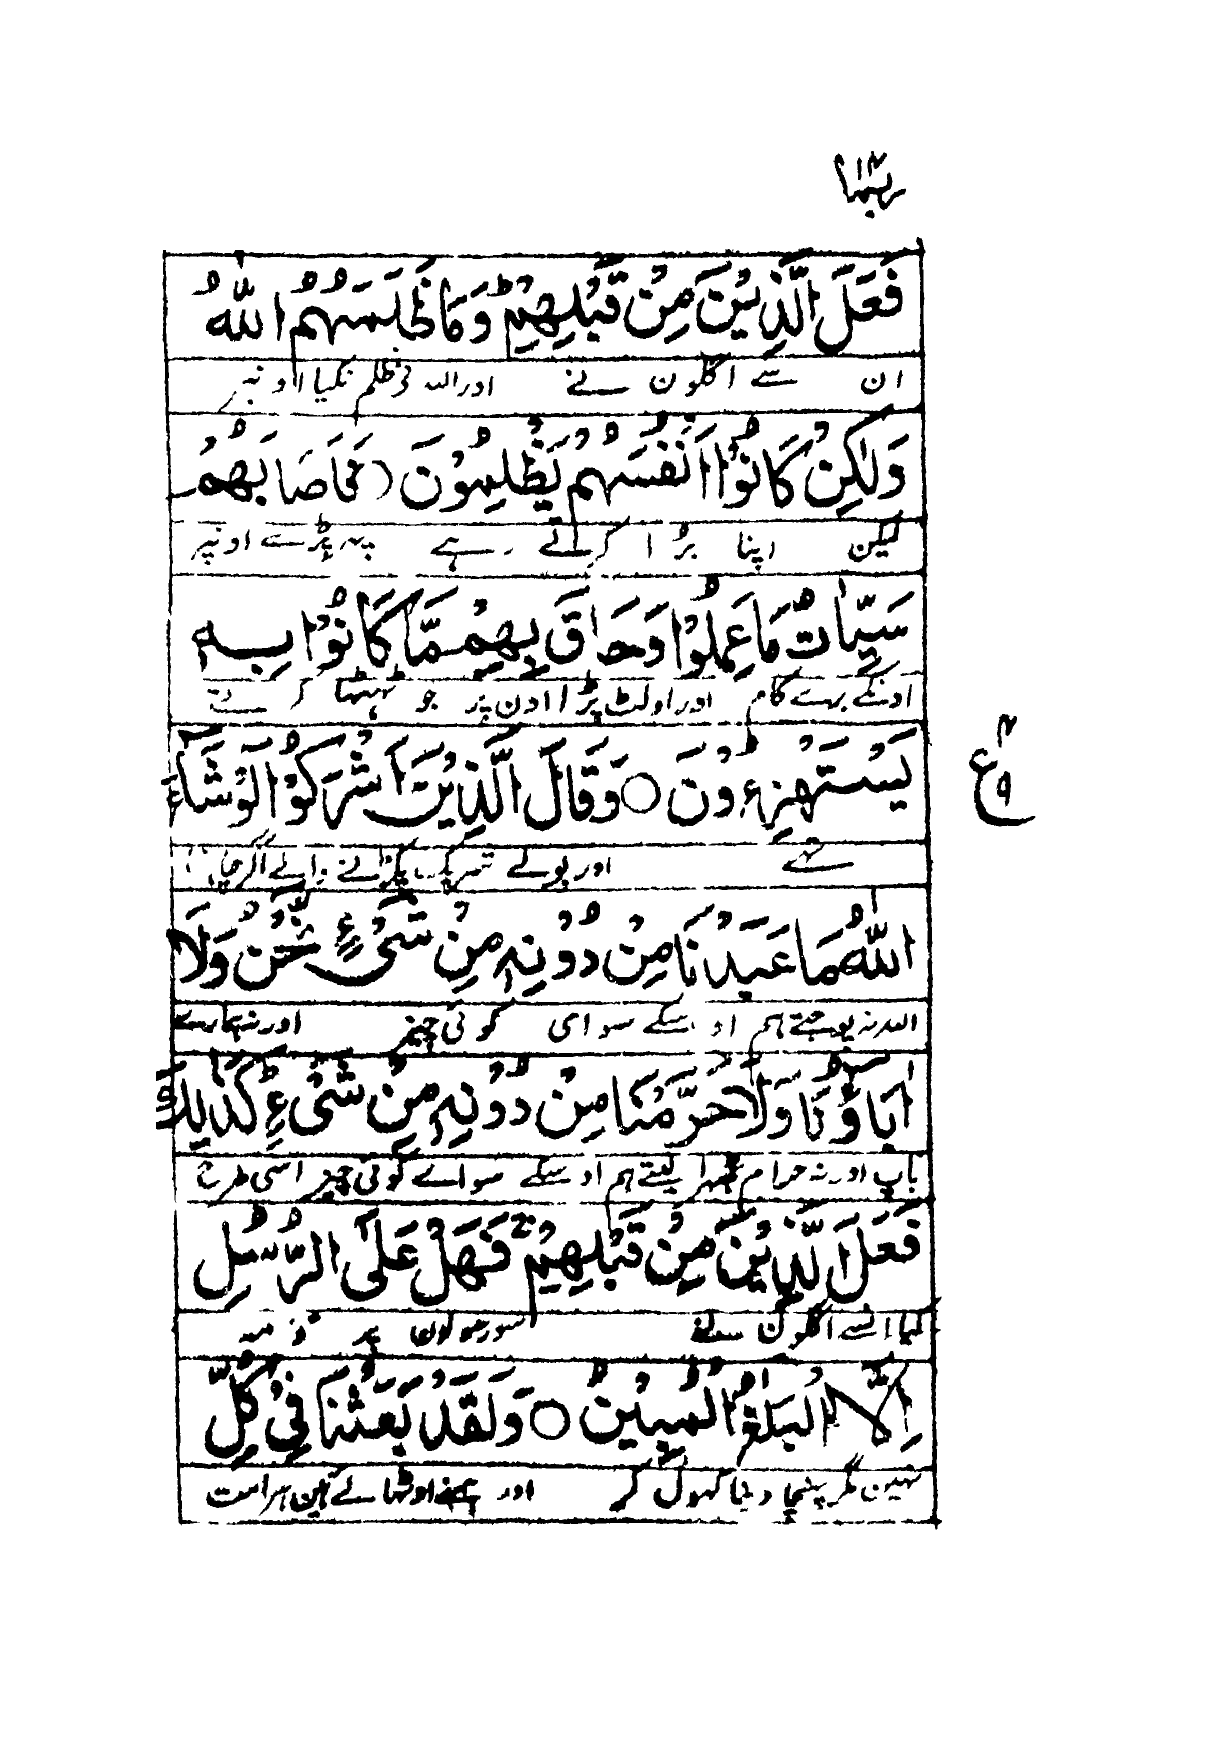 ربما ١٤
فَعَلَ الَّذِيْنَ مِنْ قَبْلِهِمْ ؕ وَمَا ظَلَمَهُمُ اللّٰهُ
ان سے اگلون نے اور اللہ نی ظلم نکیا اونپر
وَلٰكِنْ كَانُوْا اَنْفُسَهُمْ يَظْلِمُوْنَ ○ فَاَصَابَهُمْ
لیکن اپنا برُا کرتے رہے پہر پڑے اونپر
سَيِّاٰتُ مَا عَمِلُوْا وَحَاقَ بِهِمْ مَّا كَانُوْا بِهٖ
اونکے برے کام اور اولٹ پڑا اون پر جو ٹھٹھا کرتے
يَسْتَهْزِءُوْنَ ○ وَقَالَ الَّذِيْنَ اَشْرَكُوْا لَوْ شَآءَ
تھے اور بولے شریک پکڑنے والے اگر چاہتا
ع ٤ ٩
اللّٰهُ مَا عَبَدْنَا مِنْ دُوْنِهٖ مِنْ شَيْءٍ نَّحْنُ وَلَا
اللہ نہ پوجتے ہم اوسکے سوای کوئی چیز اور نہ ہمارے
اٰبَاؤُنَا وَلَا حَرَّمْنَا مِنْ دُوْنِهٖ مِنْ شَيْءٍ ؕ كَذٰلِكَ
باپ اور نہ حرام ٹھہرا لیتے ہم اوسکے سوائے کوئی چیز اسی طرح
فَعَلَ الَّذِيْنَ مِنْ قَبْلِهِمْ ۚ فَهَلْ عَلَى الرُّسُلِ
کیا انسے اگلون نے سو رسولون پر ذمہ
اِلَّا الْبَلٰغُ الْمُبِيْنُ ○ وَلَقَدْ بَعَثْنَا فِيْ كُلِّ
نہین مگر پہنچا دینا کھول کر اور ہمنے اوٹھائے ہین ہر امت